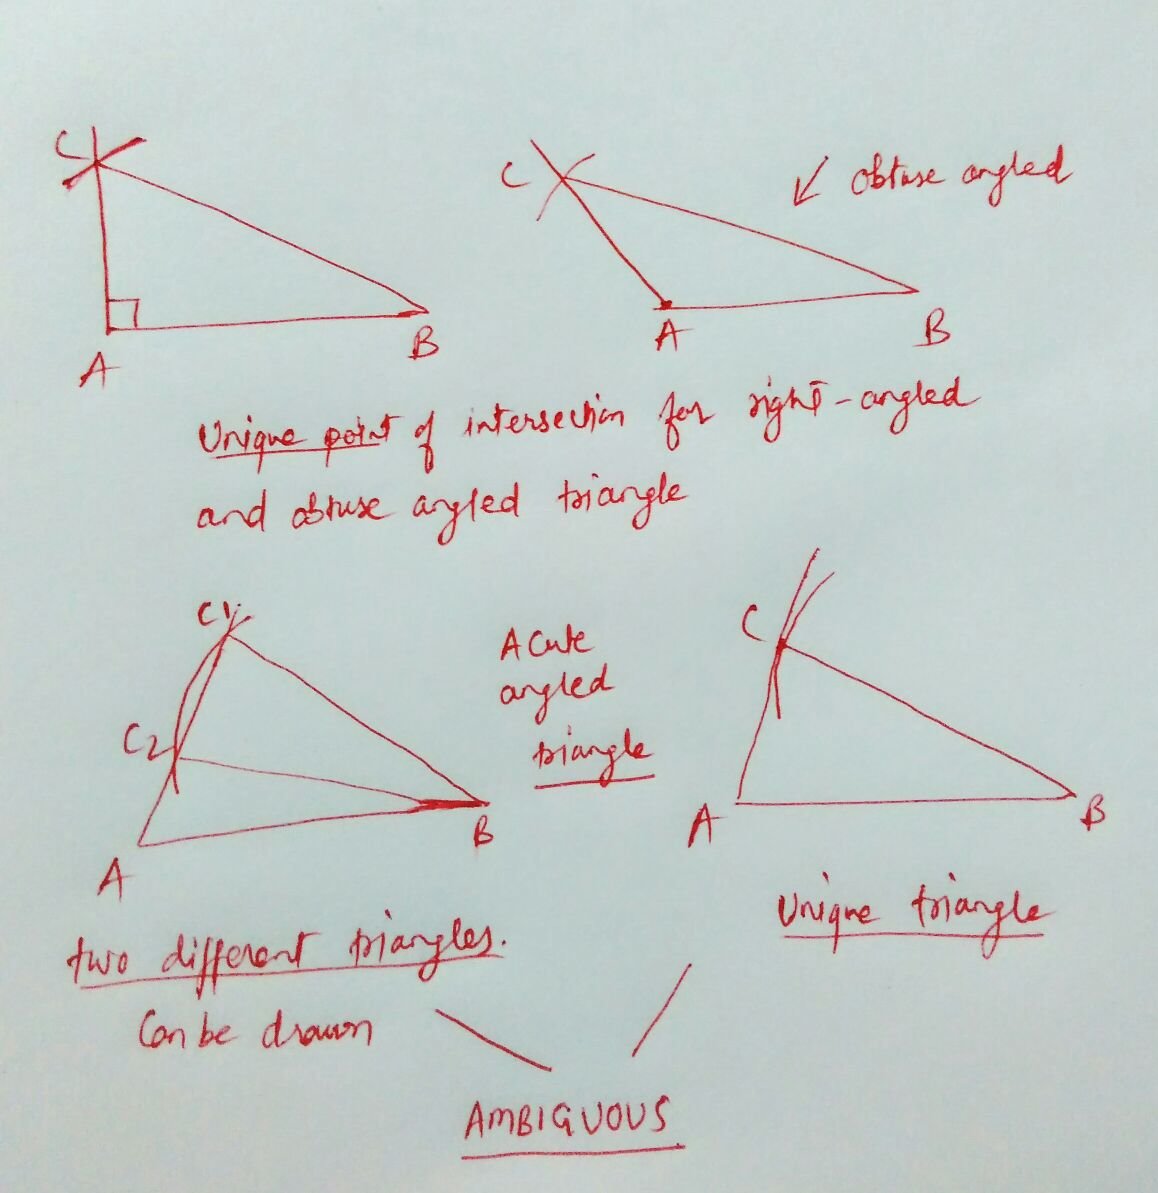 C
C
obtuse angled
A
B
A
B
Unique point of intersection for right-angled
and obtuse angled triangle
C1
C2
A
B
Acute
angled
triangle
C
A
B
two different triangles.
Can be drawn
Unique triangle
AMBIGUOUS